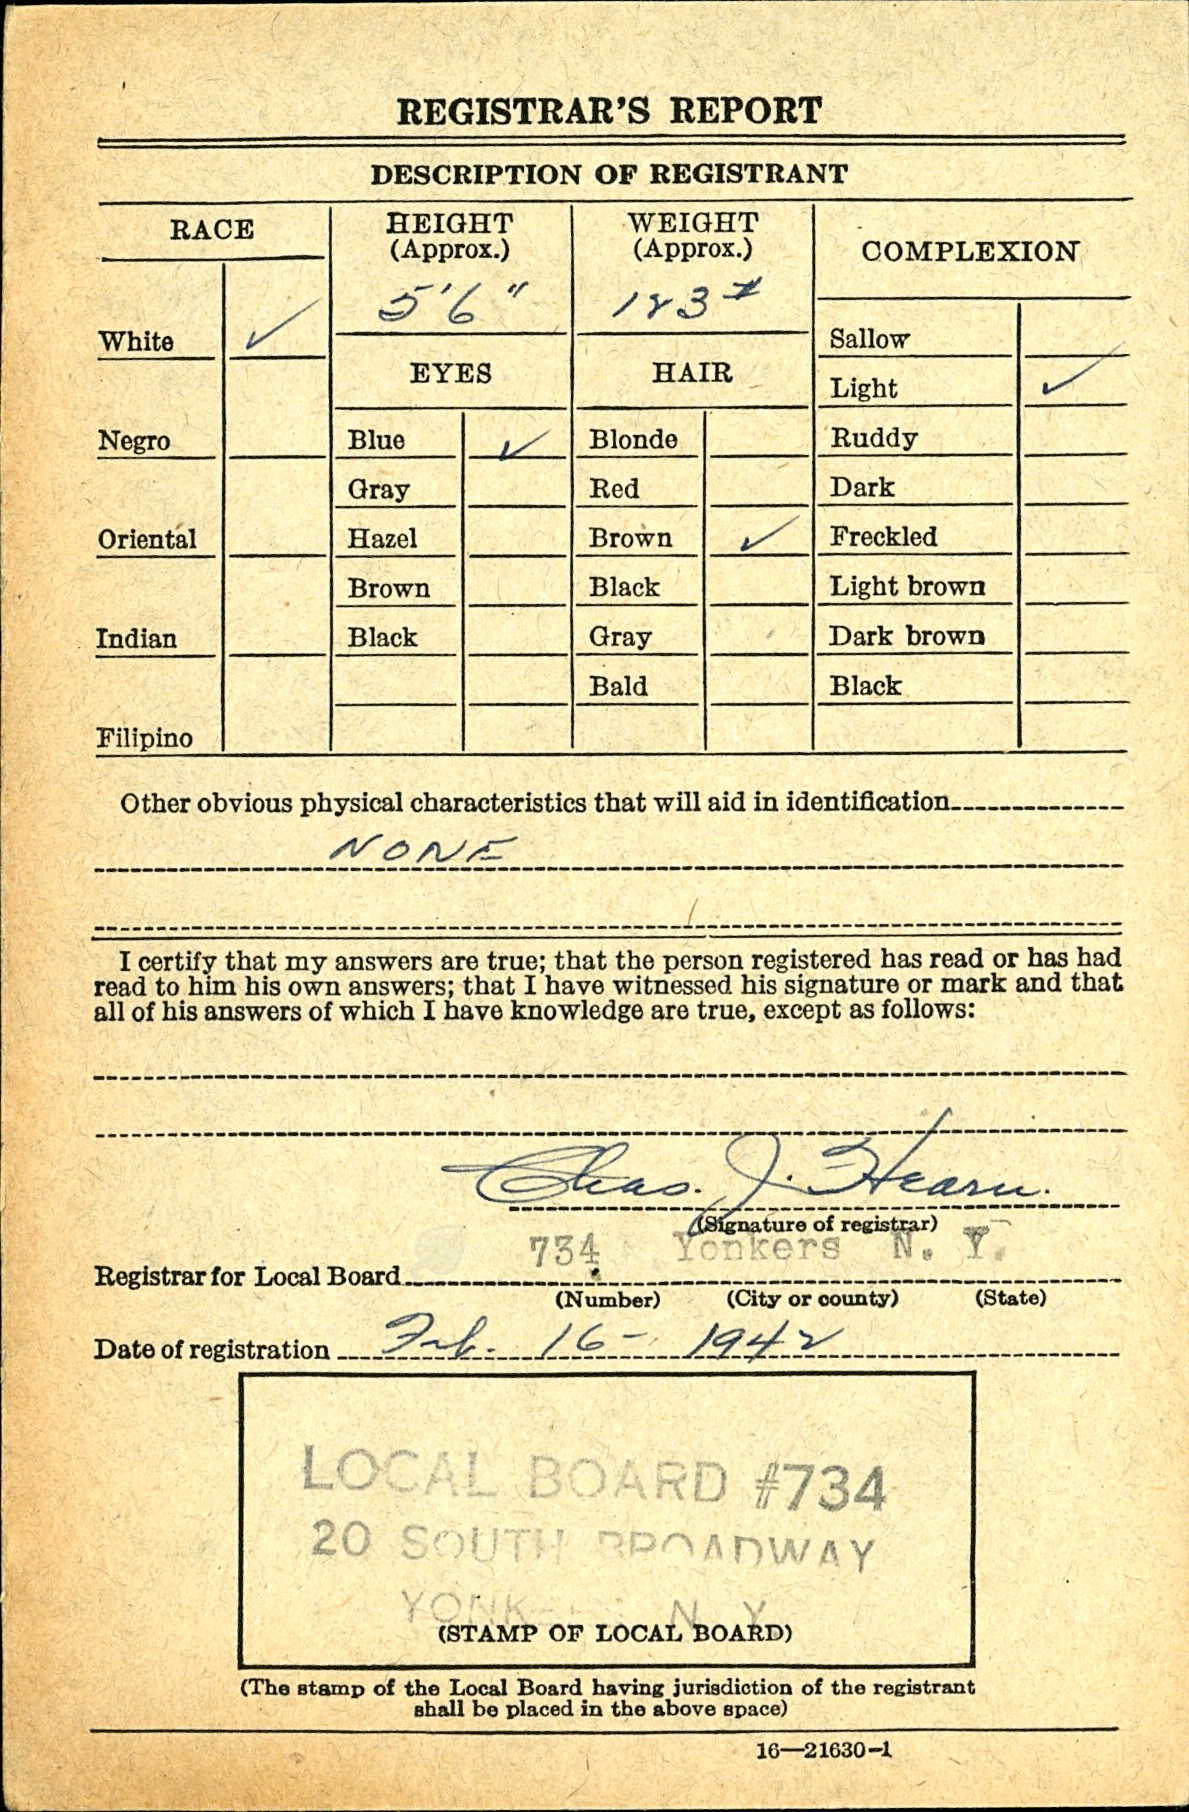 REGISTRAR'S REPORT
DESCRIPTION OF REGISTRANT
RACE
HEIGHT
(Approx.)
WEIGHT
(Approx.)
COMPLEXION
5'6"
183 #
White ✓
EYES
HAIR
Sallow
Light ✓
Negro
Blue ✓
Blonde
Ruddy
Gray
Red
Dark
Oriental
Hazel
Brown ✓
Freckled
Brown
Black
Light brown
Indian
Black
Gray
Dark brown
Bald
Black
Filipino
Other obvious physical characteristics that will aid in identification
NONE
I certify that my answers are true; that the person registered has read or has had
read to him his own answers; that I have witnessed his signature or mark and that
all of his answers of which I have knowledge are true, except as follows:
Chas. J. Hearn.
(Signature of registrar)
734 Yonkers N. Y.
Registrar for Local Board
(Number) (City or county) (State)
Date of registration Feb. 16 - 1942
LOCAL BOARD #734
20 SOUTH BROADWAY
YONK N Y.
(STAMP OF LOCAL BOARD)
(The stamp of the Local Board having jurisdiction of the registrant
shall be placed in the above space)
16—21630-1